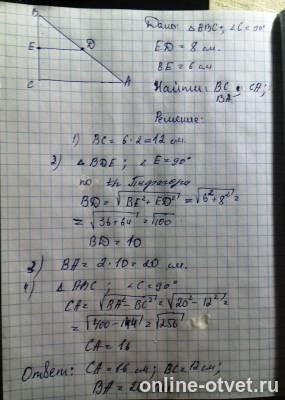 B
E
D
C
A
Дано: △ABC, ∠C = 90°
ED = 8 см.
BE = 6 см
Найти: BC, CA;
BA
Решение.
1) BC = 6 · 2 = 12 см.
2) △BDE; ∠E = 90°
по тр. Пифагора
BD = √BE² + ED² = √6² + 8² =
= √36 + 64 = √100
BD = 10
3) BA = 2 · 10 = 20 см.
4) △ABC; ∠C = 90°
CA = √BA² − BC² = √20² − 12² =
= √400 − 144 = √256
CA = 16
Ответ: CA = 16 см; BC = 12 см;
BA = 2
online-otvet.ru